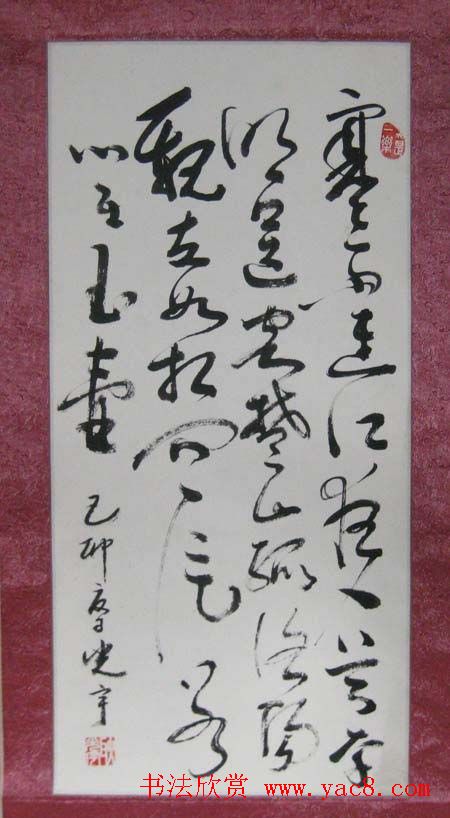 寒雨連江夜入吳平
明送客楚山孤洛陽
親友如相問一片冰
心在玉壺
己卯 光宇
书法欣赏 www.yac8.com